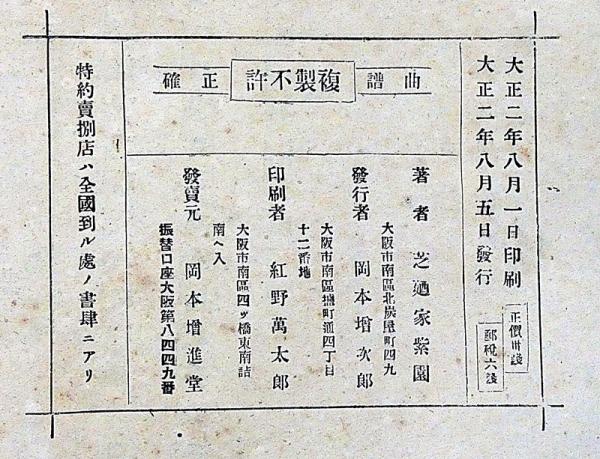 大正二年八月一日印刷
大正二年八月五日發行
正價卅錢
郵税六錢
曲譜
複製不許
正確
著者 芝廼家紫園
大阪市南區北炭屋町四九
發行者 岡本增次郎
大阪市南區 町通四丁目
十二番地
印刷者 紅野萬太郎
大阪市南區四ッ橋東南詰
南ヘ入
發賣元 岡本增進堂
振替口座大阪第八四四九番
特約賣捌店ハ全國到ル處ノ書肆ニアリ